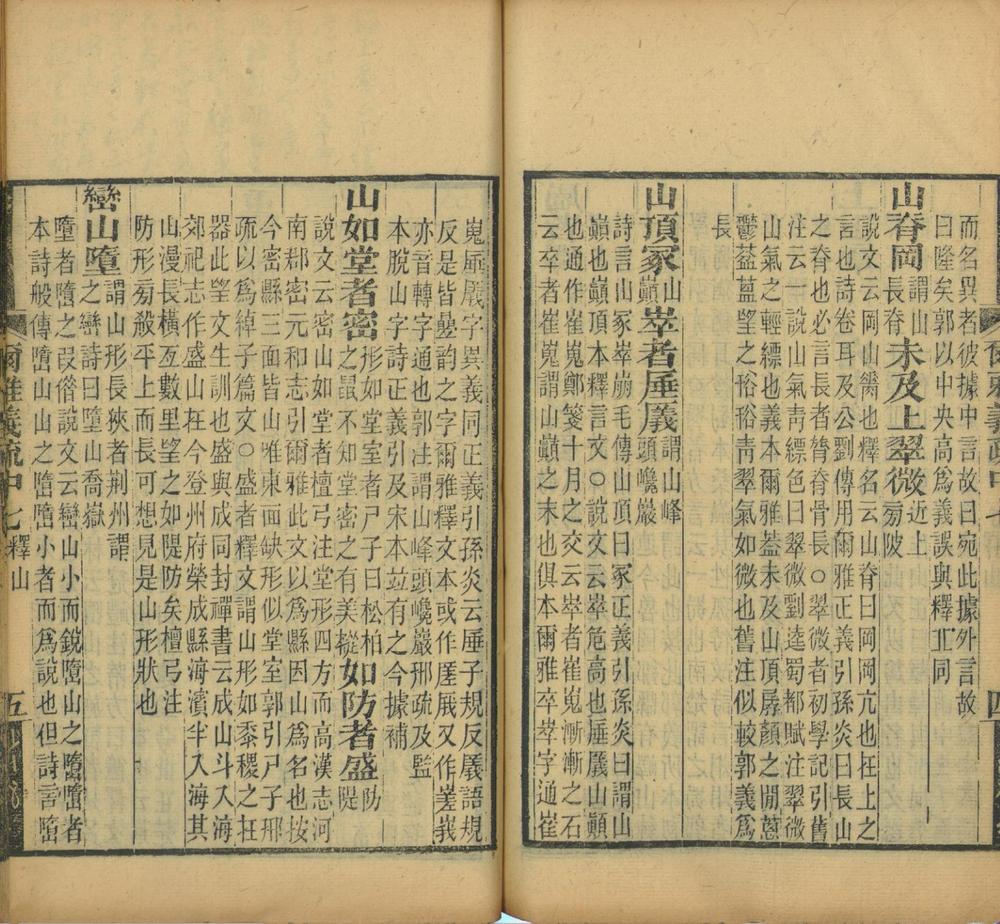 而名異者彼據中言故曰宛此據外言故
曰隆矣郭以中央高爲義誤與釋丠同
山脊岡謂山長脊未及上翠微近上㫄陂
說文云岡山脊也釋名云山脊曰岡岡亢也在上之
言也詩卷耳及公劉傳用爾雅正義引孫炎曰長山
之脊也必言長者脊脊骨長○翠微者初學記引舊
注云一說山氣靑縹色曰翠微劉逵蜀都賦注翠微
山氣之輕縹也義本爾雅葢未及山頂孱顏之閒蒀
鬱葐蒀望之㕡㕡靑翠氣如微也舊注似較郭義爲
長
山頂冢山顚崒者厜㕒謂山峰頭巉巖
詩言山冢崒崩毛傳山頂曰冢正義引孫炎曰謂山
巓也顚頂本釋言文○說文云崒危高也厜㕒山顚
也通作崔嵬鄭箋十月之交云崒者崔嵬漸漸之石
云卒者崔嵬謂山巓之末也俱本爾雅卒崒字通崔
嵬厜㕒字異義同正義引孫炎云厜子規反㕒語規
反是皆曡韵之字爾雅釋文本或作㕒厜又作嵳峩
亦音轉字通也郭注謂山峰頭巉巖邢疏及監
本脫山字詩正義引及宋本竝有之今據補
山如堂者密形如堂室者尸子曰松柏之鼠不知堂密之有美樅如防者盛隄防
說文云密山如堂者檀弓注堂形四方而高漢志河
南郡密元和志引爾雅此文以爲縣因山爲名也按
今密縣三面皆山雅東面缺形似堂室郭引尸子邢
疏以爲綽子篇文○盛者釋文謂山形如黍稷之在
器此望文生訓也盛與成同封禪書云成山斗入海
郊祀志作盛山在今登州府榮成縣海濱半入海其
山漫長橫亙數里望之如隄防矣檀弓注
防形㫄殺平上而長可想見是山形狀也
巒山墮謂山形長狹者荆州謂之巒詩曰墮山喬嶽
墮者隋之叚借說文云巒山小而銳隋山之隋隋者
本詩般傳隋山山之隋隋小者而爲說也但詩言隋
爾雅義疏中七 釋山 五